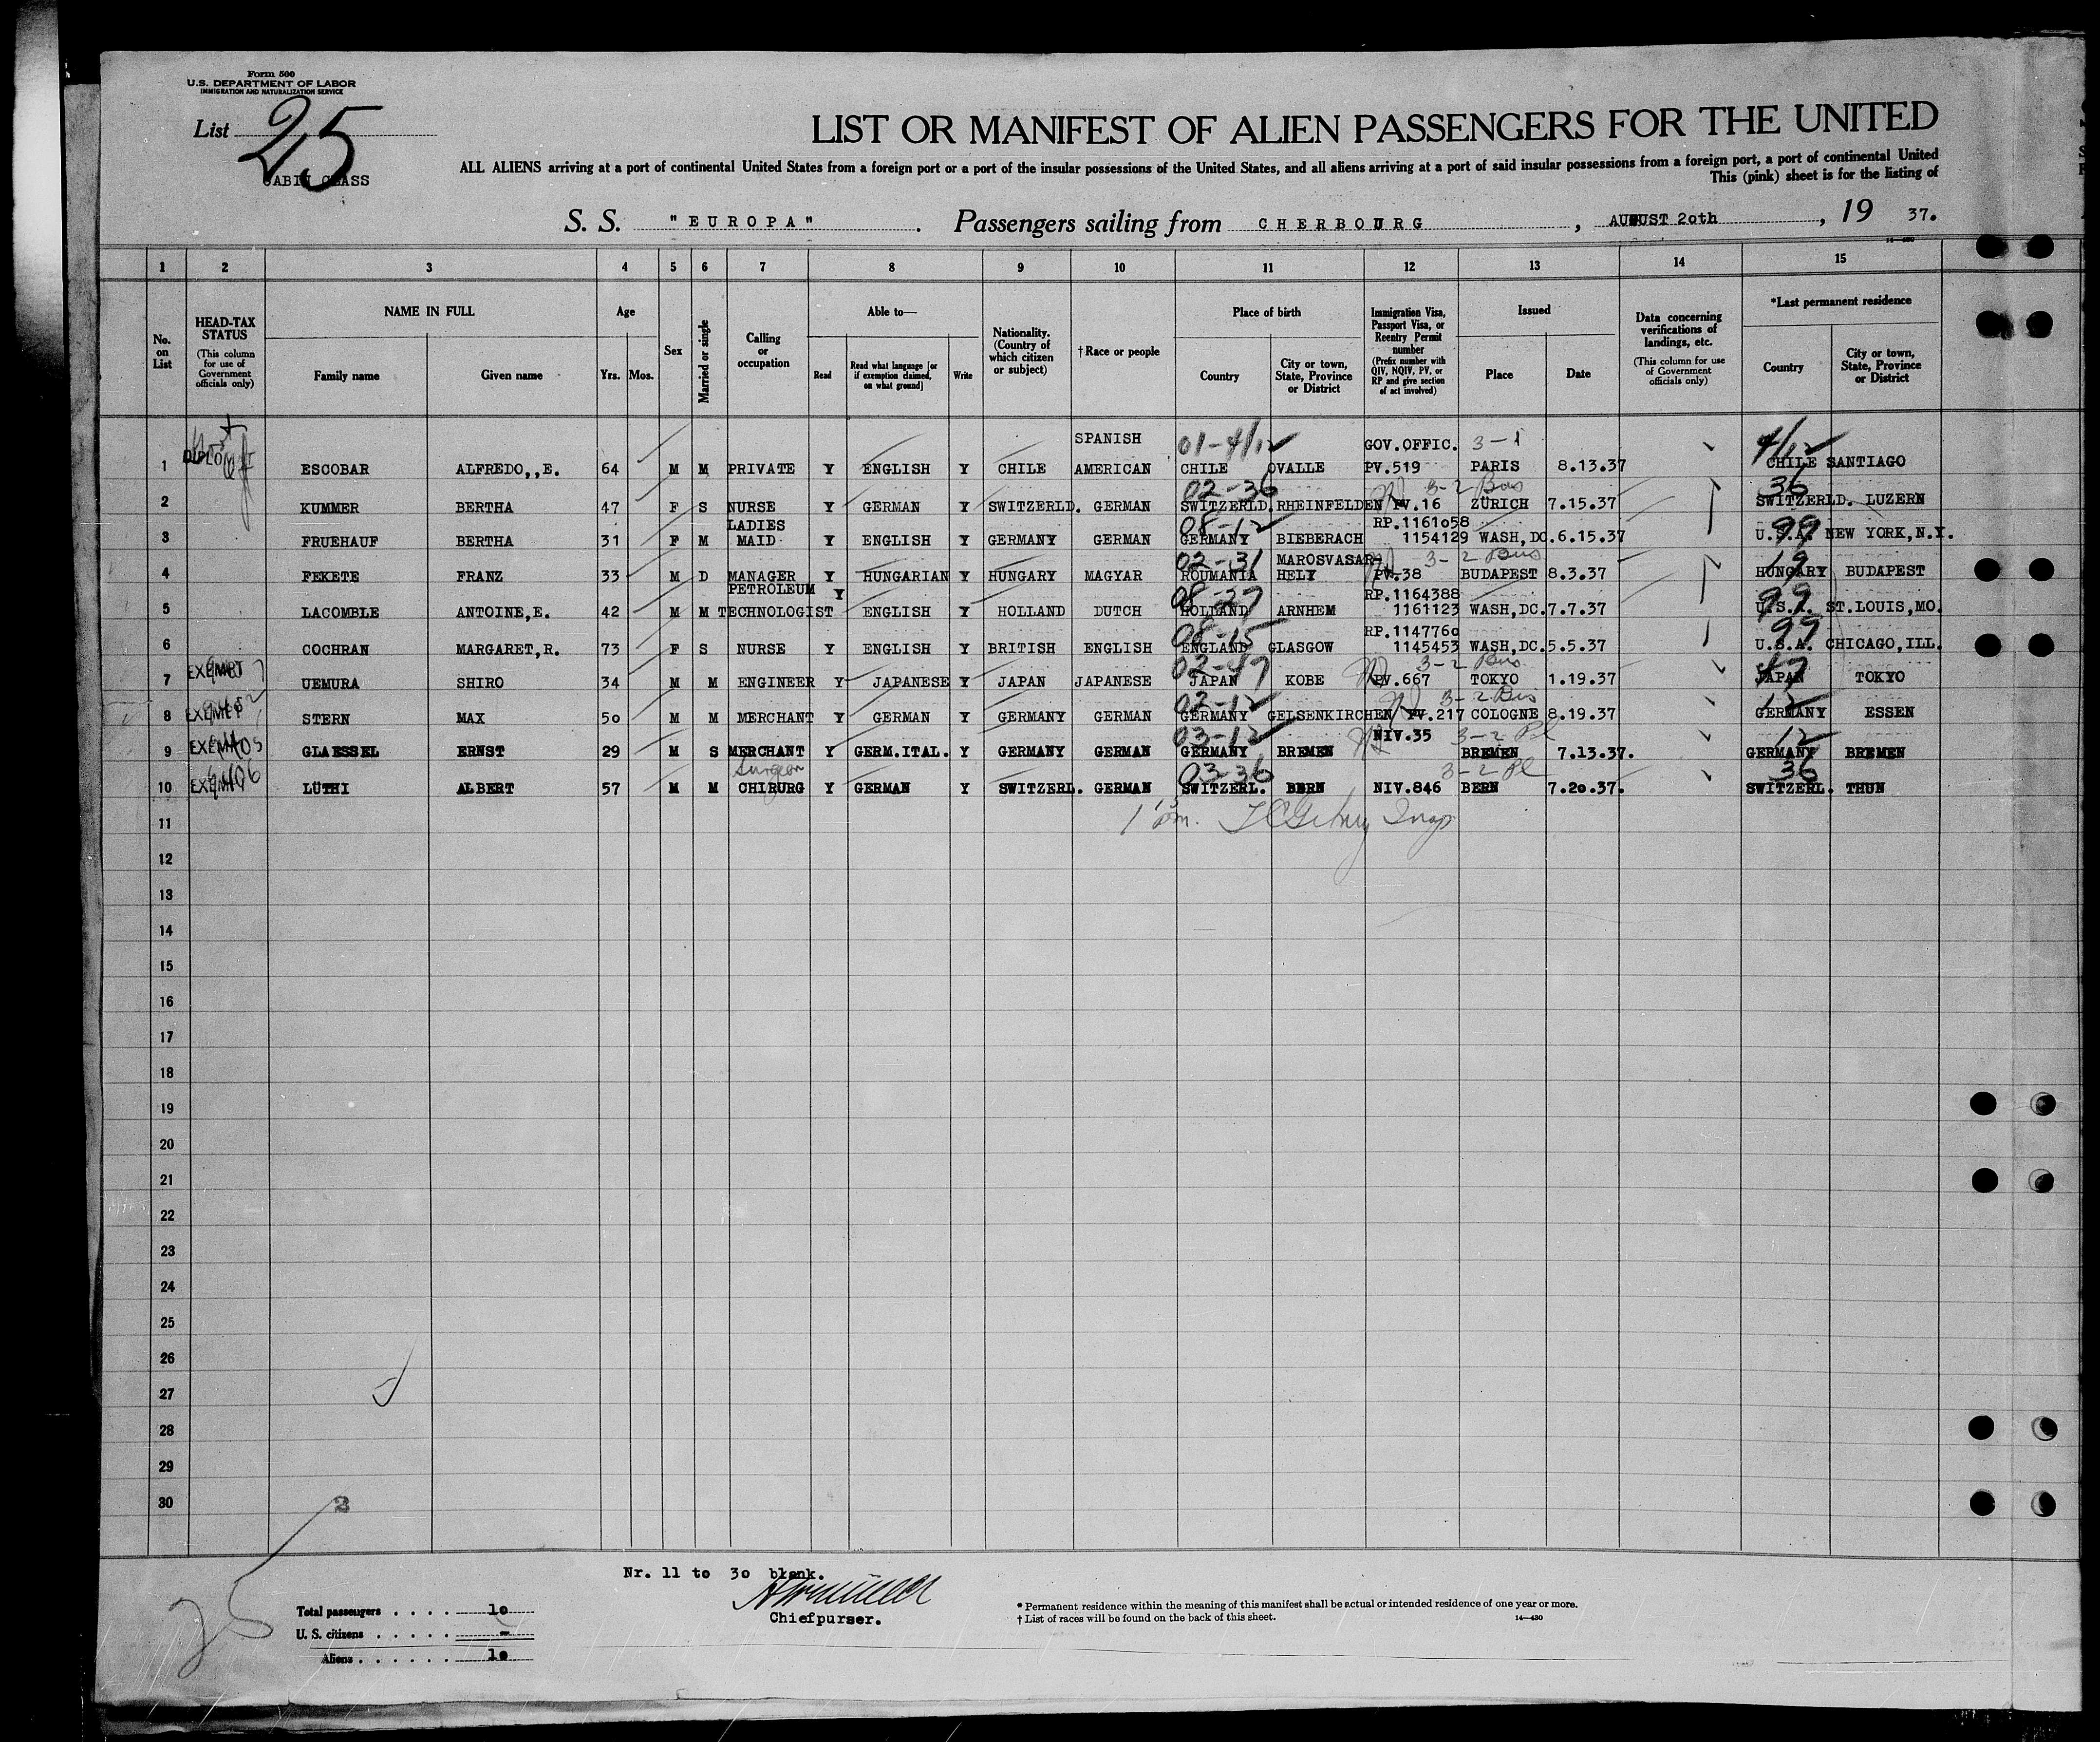 Form 500
U.S. DEPARTMENT OF LABOR
IMMIGRATION AND NATURALIZATION SERVICE
List 25
CABIN CLASS
LIST OR MANIFEST OF ALIEN PASSENGERS FOR THE UNITED
ALL ALIENS arriving at a port of continental United States from a foreign port or a port of the insular possessions of the United States, and all aliens arriving at a port of said insular possessions from a foreign port, a port of continental United
This (pink) sheet is for the listing of
S. S. "EUROPA" . Passengers sailing from CHERBOURG , AUGUST 20th , 19 37.
14—430
1 2 3 4 5 6 7 8 9 10 11 12 13 14 15
No. on List
HEAD-TAX STATUS (This column for use of Government officials only)
NAME IN FULL
Family name Given name
Age
Yrs. Mos.
Sex
Married or single
Calling or occupation
Able to—
Read Read what language [or if exemption claimed, on what ground] Write
Nationality. (Country of which citizen or subject)
†Race or people
Place of birth
Country City or town, State, Province or District
Immigration Visa, Passport Visa, or Reentry Permit number (Prefix number with QIV, NQIV, PV, or RP and give section of act involved)
Issued
Place Date
Data concerning verifications of landings, etc. (This column for use of Government officials only)
*Last permanent residence
Country City or town, State, Province or District
SPANISH 01-4/12 GOV.OFFIC. 3-1 4/12
1 DIPLOM ESCOBAR ALFREDO,,E. 64 M M PRIVATE Y ENGLISH Y CHILE AMERICAN CHILE OVALLE PV.519 PARIS 8.13.37 CHILE SANTIAGO
02-36 3-2 Bus 36
2 KUMMER BERTHA 47 F S NURSE Y GERMAN Y SWITZERLD. GERMAN SWITZERLD. RHEINFELDEN PV.16 ZÜRICH 7.15.37 SWITZERLD. LUZERN
LADIES 08-12 RP.1161058 99
3 FRUEHAUF BERTHA 31 F M MAID Y ENGLISH Y GERMANY GERMAN GERMANY BIEBERACH 1154129 WASH,DC.6.15.37 U.S.A. NEW YORK,N.Y.
02-31 MAROSVASAR 3-2 Bus 19
4 FEKETE FRANZ 33 M D MANAGER Y HUNGARIAN Y HUNGARY MAGYAR ROUMANIA HELY PV.38 BUDAPEST 8.3.37 HUNGARY BUDAPEST
PETROLEUM Y 08-27 RP.1164388 99
5 LACOMBLE ANTOINE,E. 42 M M TECHNOLOGIST ENGLISH Y HOLLAND DUTCH HOLLAND ARNHEM 1161123 WASH,DC.7.7.37 U.S.A. ST.LOUIS,MO.
08-15 RP.1147760 99
6 COCHRAN MARGARET,R. 73 F S NURSE Y ENGLISH Y BRITISH ENGLISH ENGLAND GLASGOW 1145453 WASH,DC.5.5.37 U.S.A. CHICAGO,ILL.
02-47 3-2 Bus 47
7 EXEMPT UEMURA SHIRO 34 M M ENGINEER Y JAPANESE Y JAPAN JAPANESE JAPAN KOBE PV.667 TOKYO 1.19.37 JAPAN TOKYO
02-12 3-2 Bus 12
8 EXEMPT STERN MAX 50 M M MERCHANT Y GERMAN Y GERMANY GERMAN GERMANY GELSENKIRCHEN PV.217 COLOGNE 8.19.37 GERMANY ESSEN
03-12 NIV.35 3-2 Pl 12
9 EXEMPT GLAESSEL ERNST 29 M S MERCHANT Y GERM.ITAL. Y GERMANY GERMAN GERMANY BREMEN BREMEN 7.13.37. GERMANY BREMEN
Surgeon 03-36 3-2 Pl 36
10 EXEMPT LÜTHI ALBERT 57 M M CHIRURG Y GERMAN Y SWITZERL. GERMAN SWITZERL. BERN NIV.846 BERN 7.20.37. SWITZERL. THUN
11
12
13
14
15
16
17
18
19
20
21
22
23
24
25
26
27
28
29
30
2
25
Nr. 11 to 30 blank.
Chiefpurser.
Total passengers . . . . 10
U. S. citizens . . . . . -
Aliens . . . . . . 10
* Permanent residence within the meaning of this manifest shall be actual or intended residence of one year or more.
† List of races will be found on the back of this sheet.
14—430